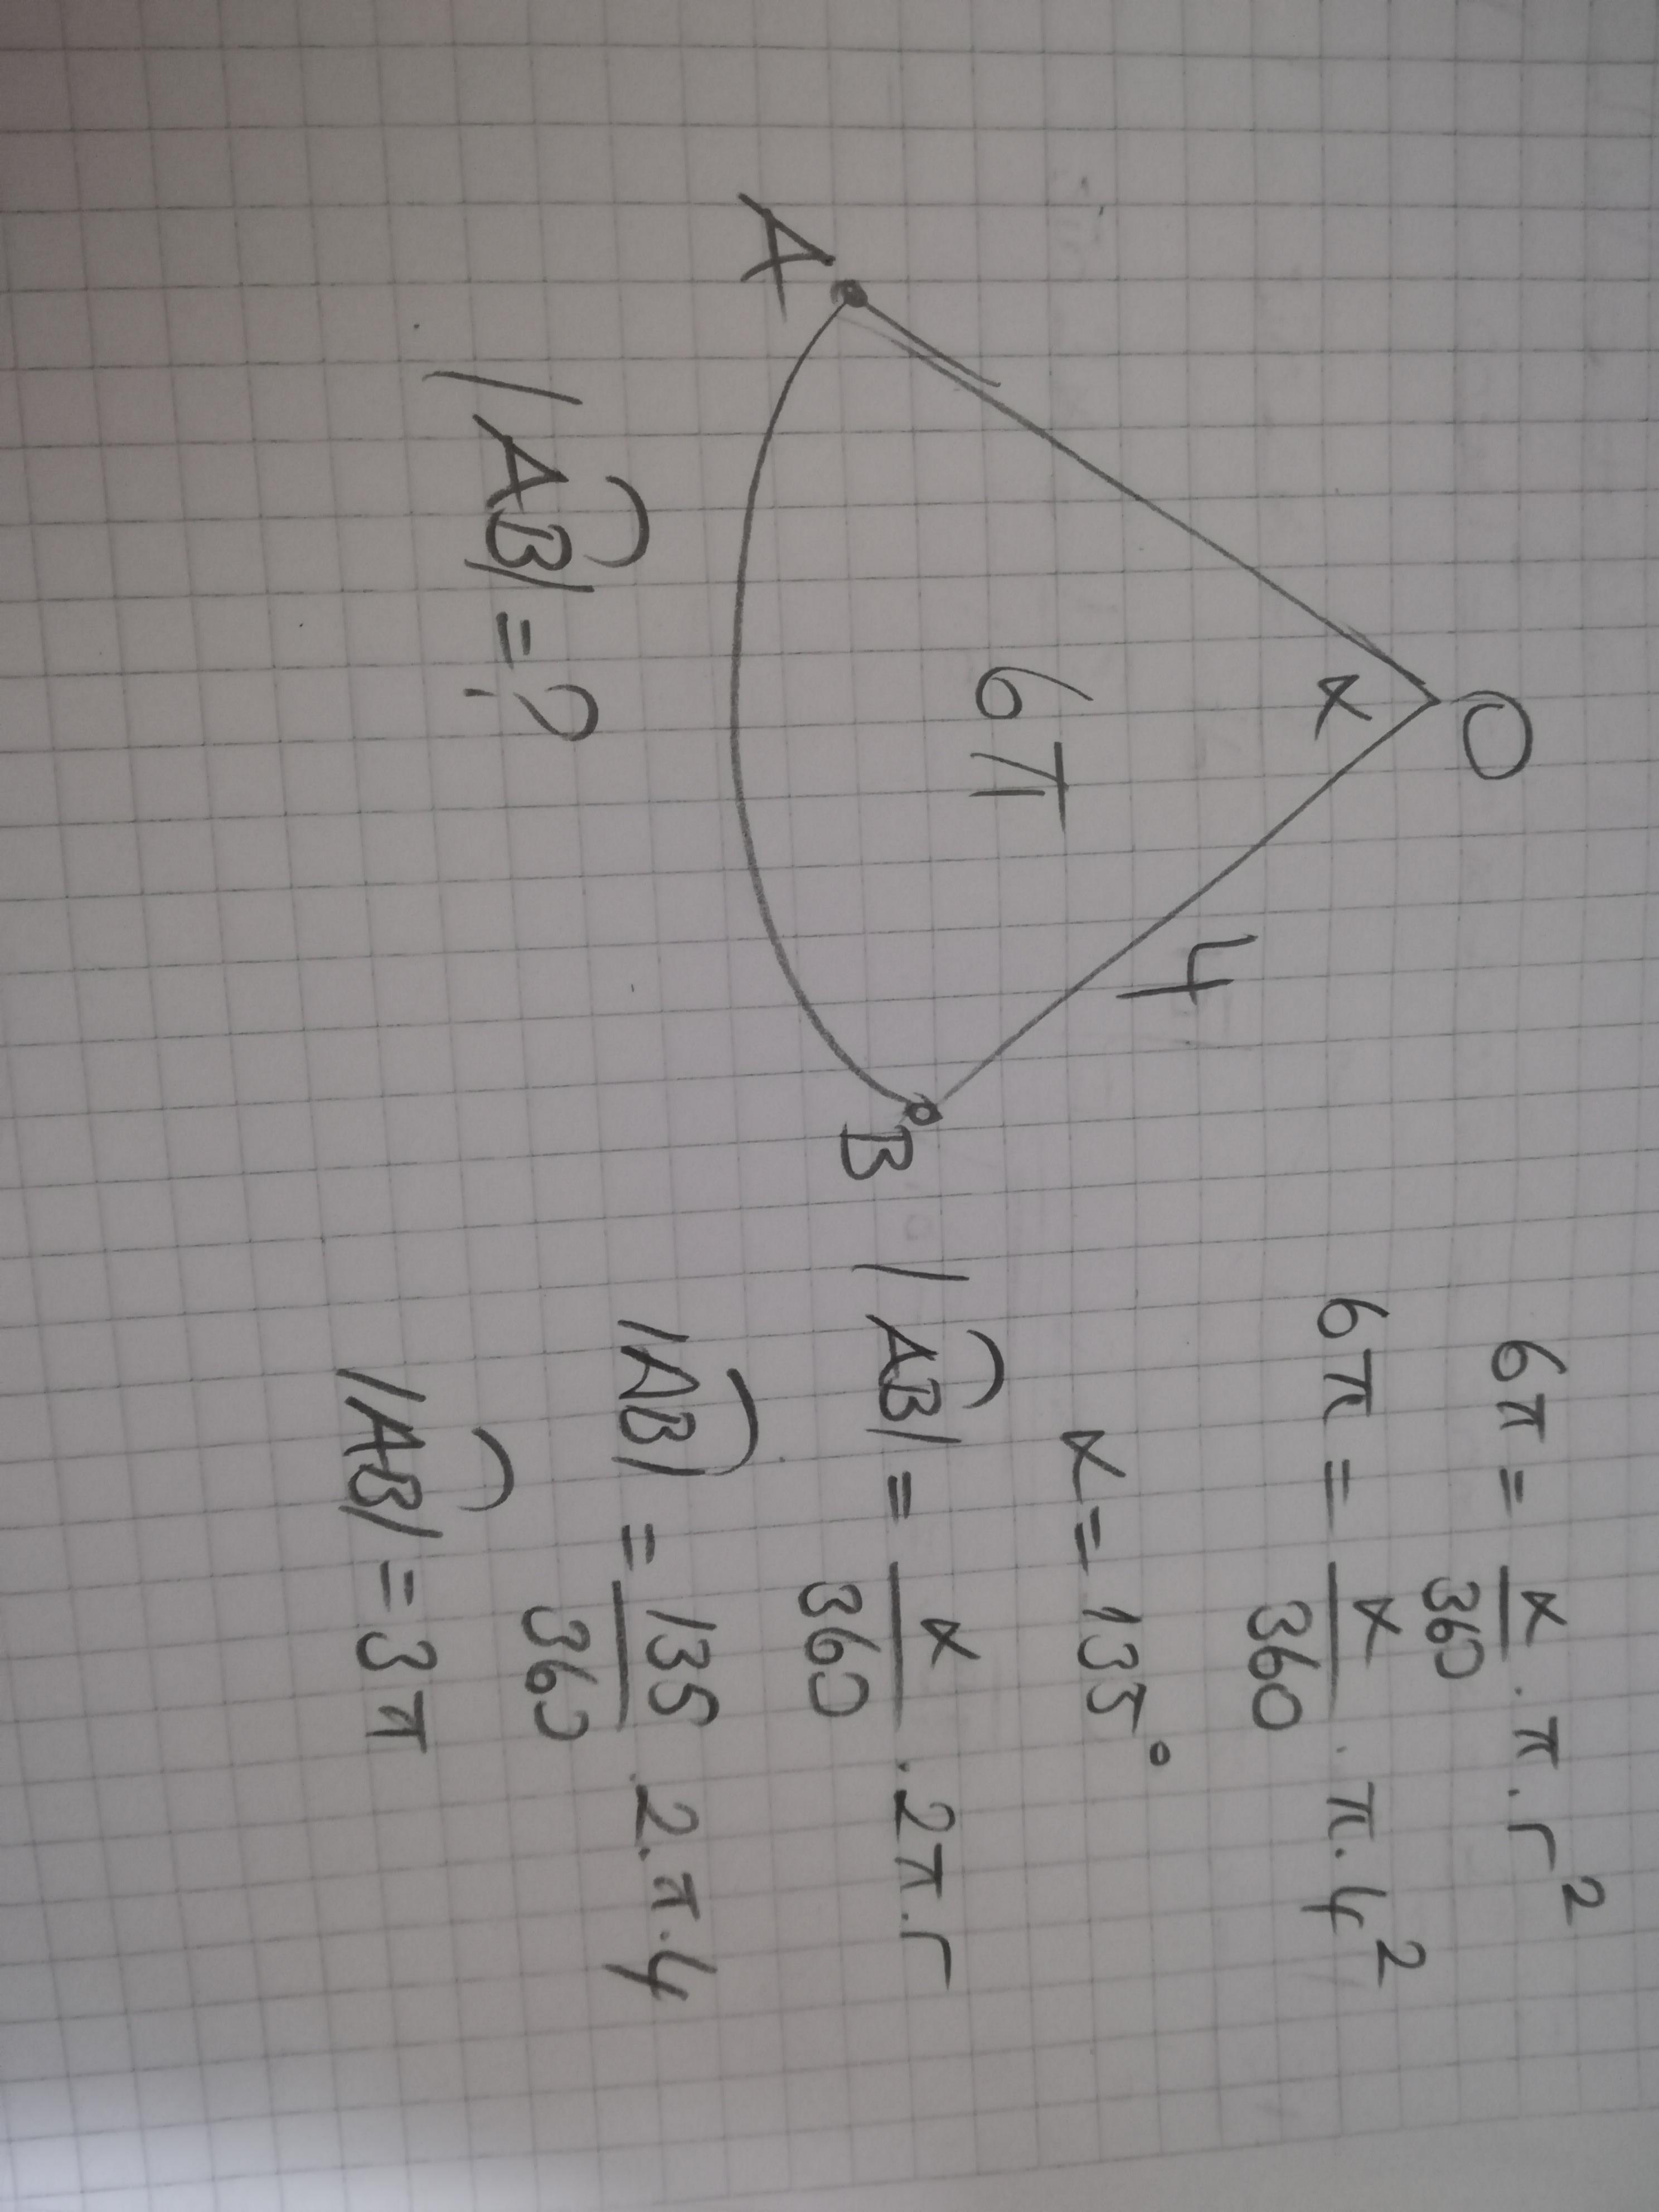 O
α
4
6π
A
B
|A͡B| = ?
6π = α/360 . π . r²
6π = α/360 . π . 4²
α = 135°
|A͡B| = α/360 . 2π . r
|A͡B| = 135/360 . 2 . π . 4
|A͡B| = 3π